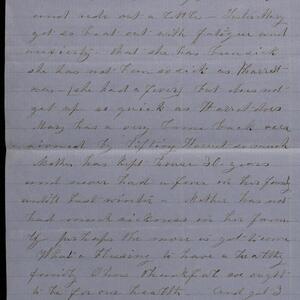 and ride out a little —
got so beat out with fatigue and
anxiety that she has been sick
she has not been so sick as Harriet
was (she had a fever) but does not
get up so quick as Harriet does
Mary has a very lame back
by lifting Harriet so much
Mother has kept house 30 years
and never had a fever in her family
until last winter — Mother has not
had much sickness in her fami
ly perhaps the more is yet to come
What a blessing to have a healthy
family O how thankful we ought
to be for our health — And yet I